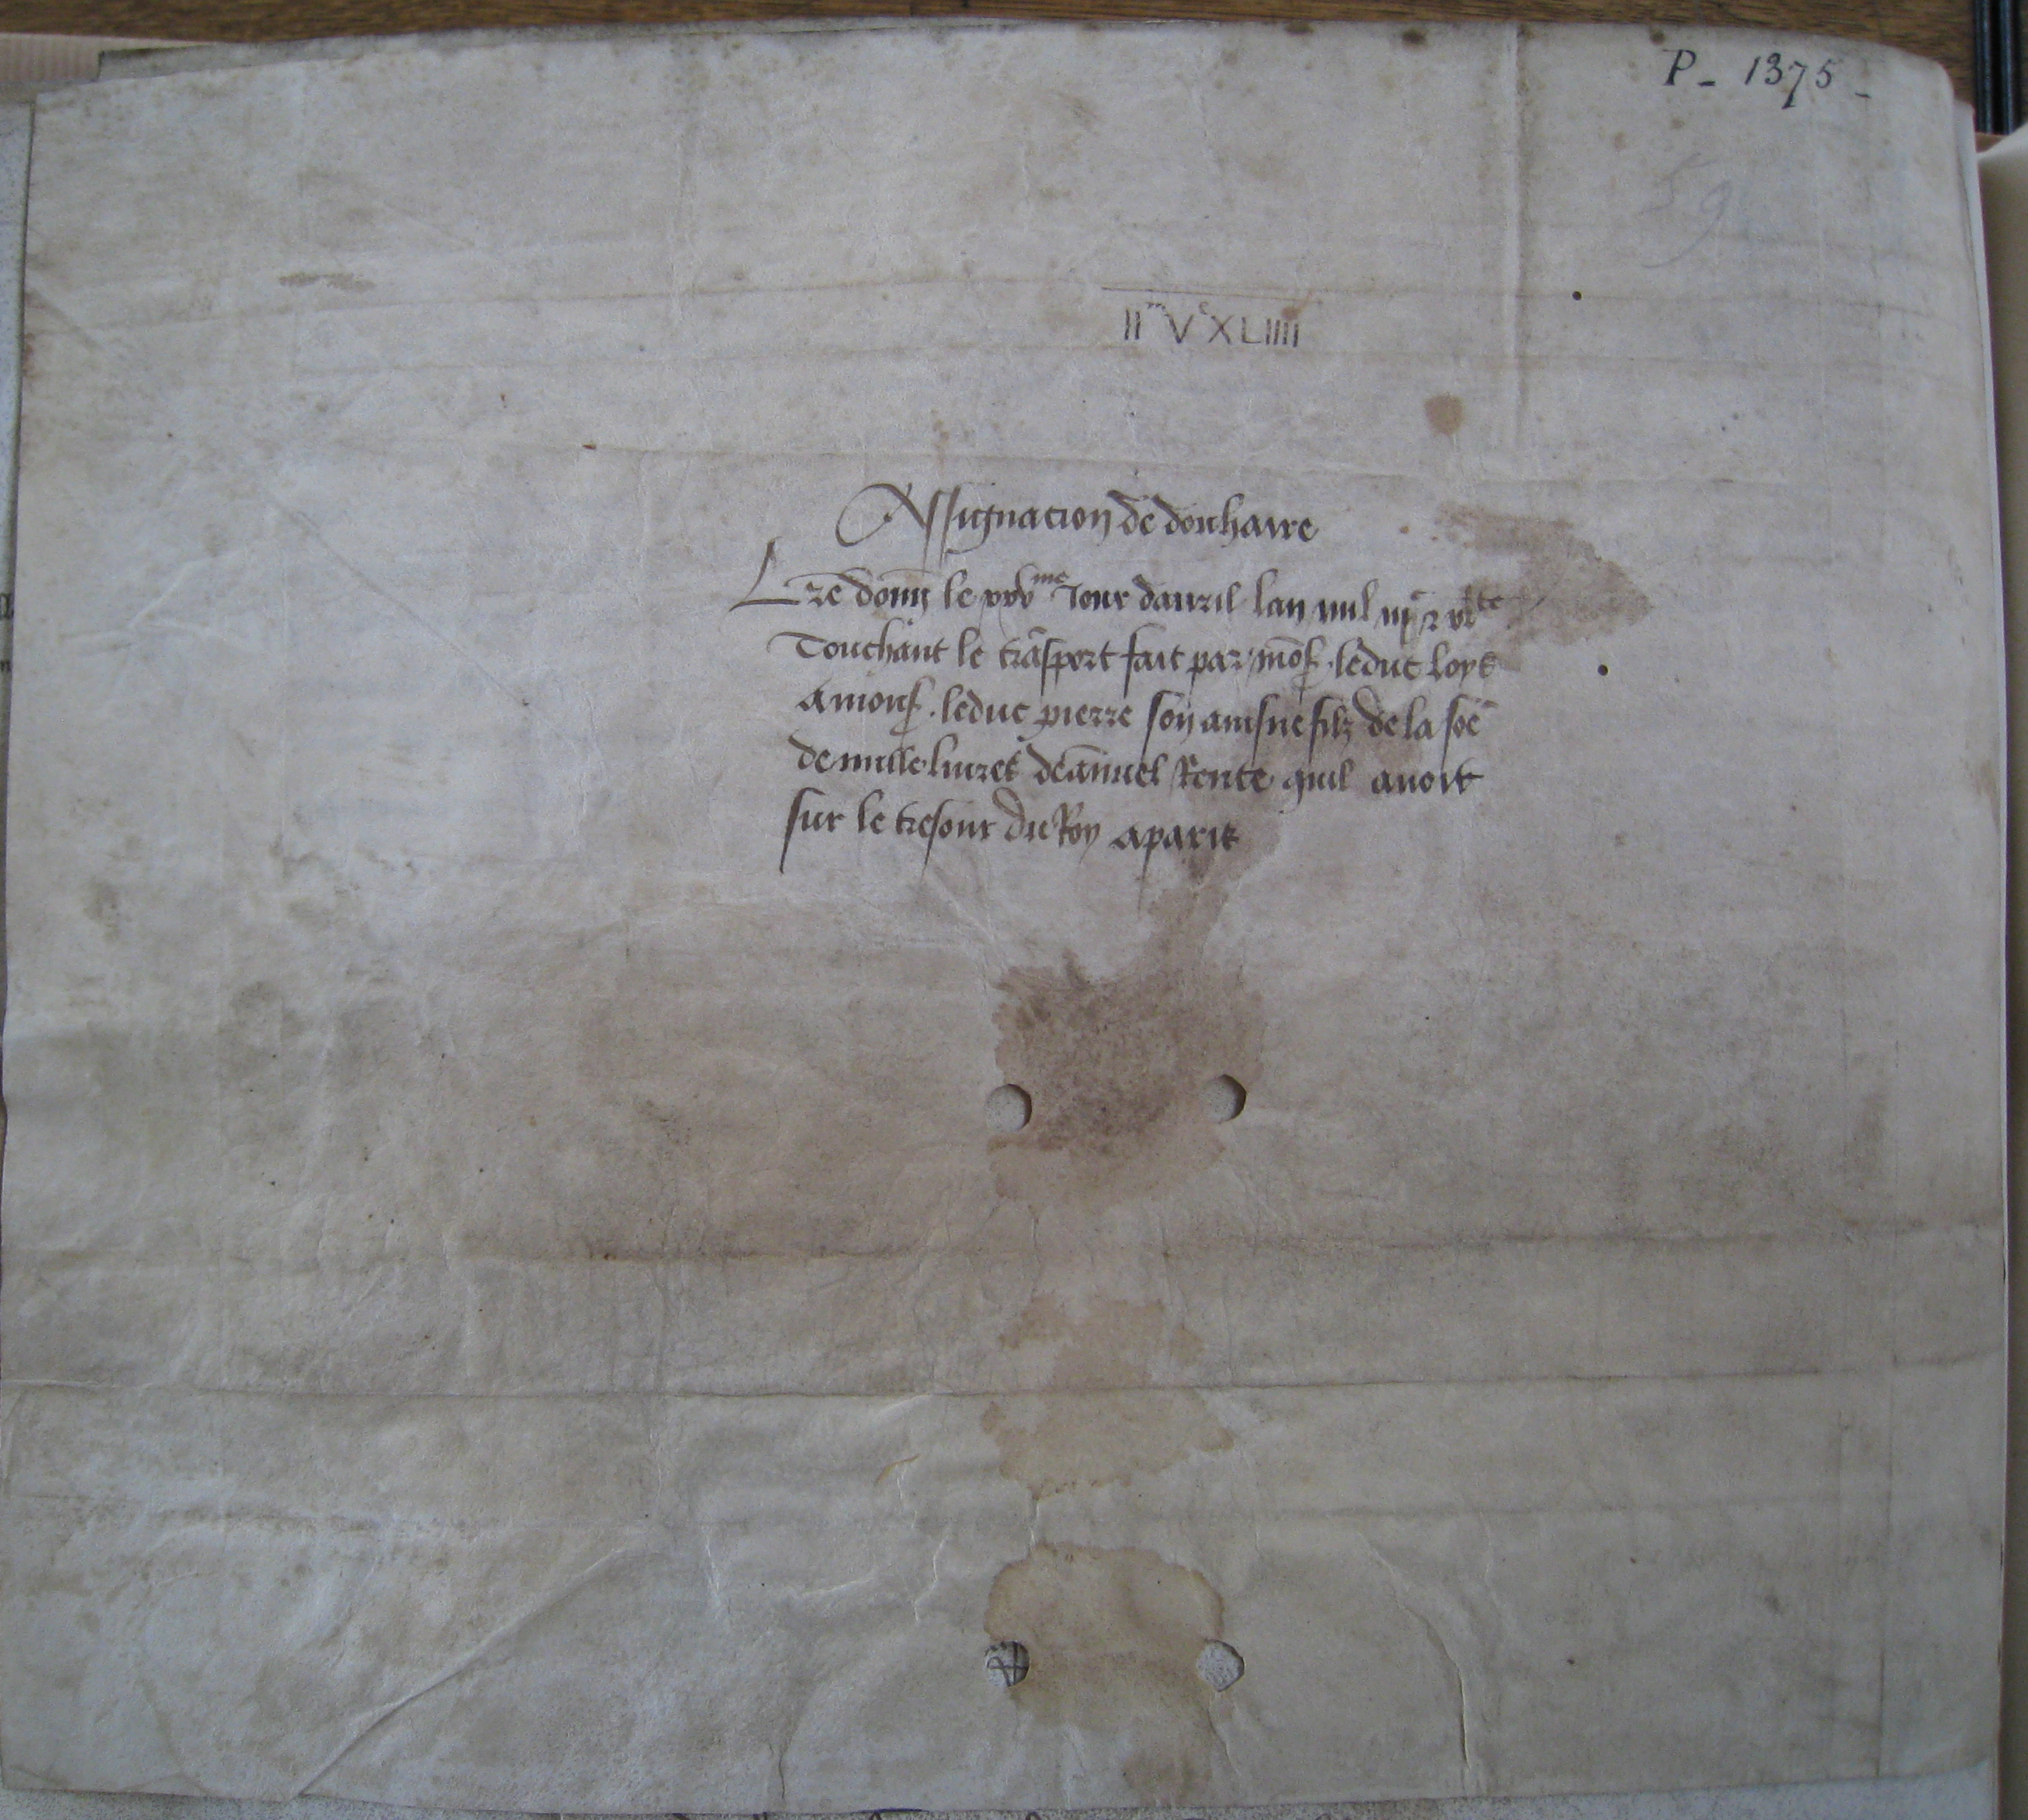 P - 1375 -
59
IIm Vc XLIIII
Assignacion de douhaire
Lre donn le xxvme Jour dauril lan mil iiic
Touchant le trãsport fait par mons. leduc loys
A mons. leduc pierre son aisne filz de la sõe
de mille liures dãnuel Rente quil auoit
sur le tresour du Roy aparis